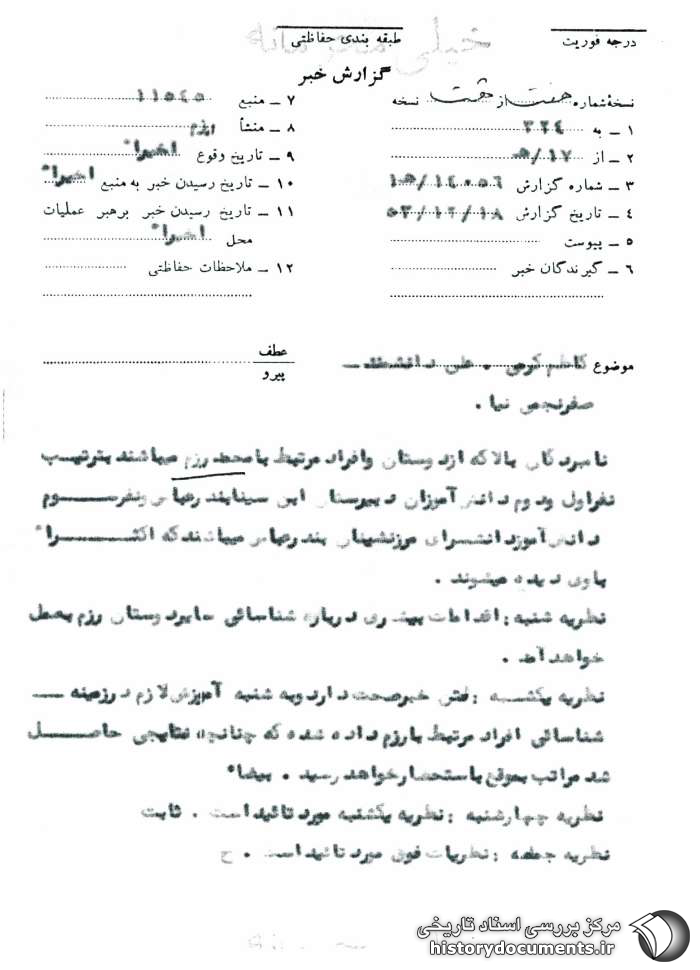 خیلی محرمانه
درجه فوریت
طبقه بندی حفاظتی
گزارش خبر
نسخهٔ شماره هفت از هشت نسخه
۱ ــ به ۳۲۴
۲ ــ از ۱۷/ه
۳ ــ شماره گزارش ۱۴۰۵۶/ه۱
۴ ــ تاریخ گزارش ۵۳/۱۲/۱۸
۵ ــ پیوست
۶ ــ گیرندگان خبر
۷ ــ منبع ۱۱۵۴۵
۸ ــ منشأ رزم
۹ ــ تاریخ وقوع اخیراً
۱۰ ــ تاریخ رسیدن خبر به منبع اخیراً
۱۱ ــ تاریخ رسیدن خبر برهبر عملیات
محل اخیراً
۱۲ ــ ملاحظات حفاظتی
موضوع کاظم کرمی ـ علی دانشمند ــ
صفر نجمی نیا .
عطف
پیرو
نامبردگان بالا که از دوستان وافراد مرتبط با محمد رزم میباشند بترتیب
نفراول ودوم دانش آموزان دبیرستان ابن سینا بندرعباس ونفر سوم
دانش آموز دانشسرای مرزنشینان بندرعباس میباشند که اکثراً
باوی دیده میشوند .
نظریه شنبه : اقدامات بیشتری درباره شناسائی سایر دوستان رزم بعمل
خواهد آمد .
نظریه یکشنبه : خبر صحت دارد وبه شنبه آموزش لازم درزمینه ــ
شناسائی افراد مرتبط با رزم داده شده که چنانچه نتایجی حاصل
شد مراتب بموقع باستحضار خواهد رسید . بیضاء
نظریه چهارشنبه : نظریه یکشنبه مورد تائید است . ثابت
نظریه جمعه : نظریات فوق مورد تائید است . ح
مرکز بررسی اسناد تاریخی
historydocuments.ir